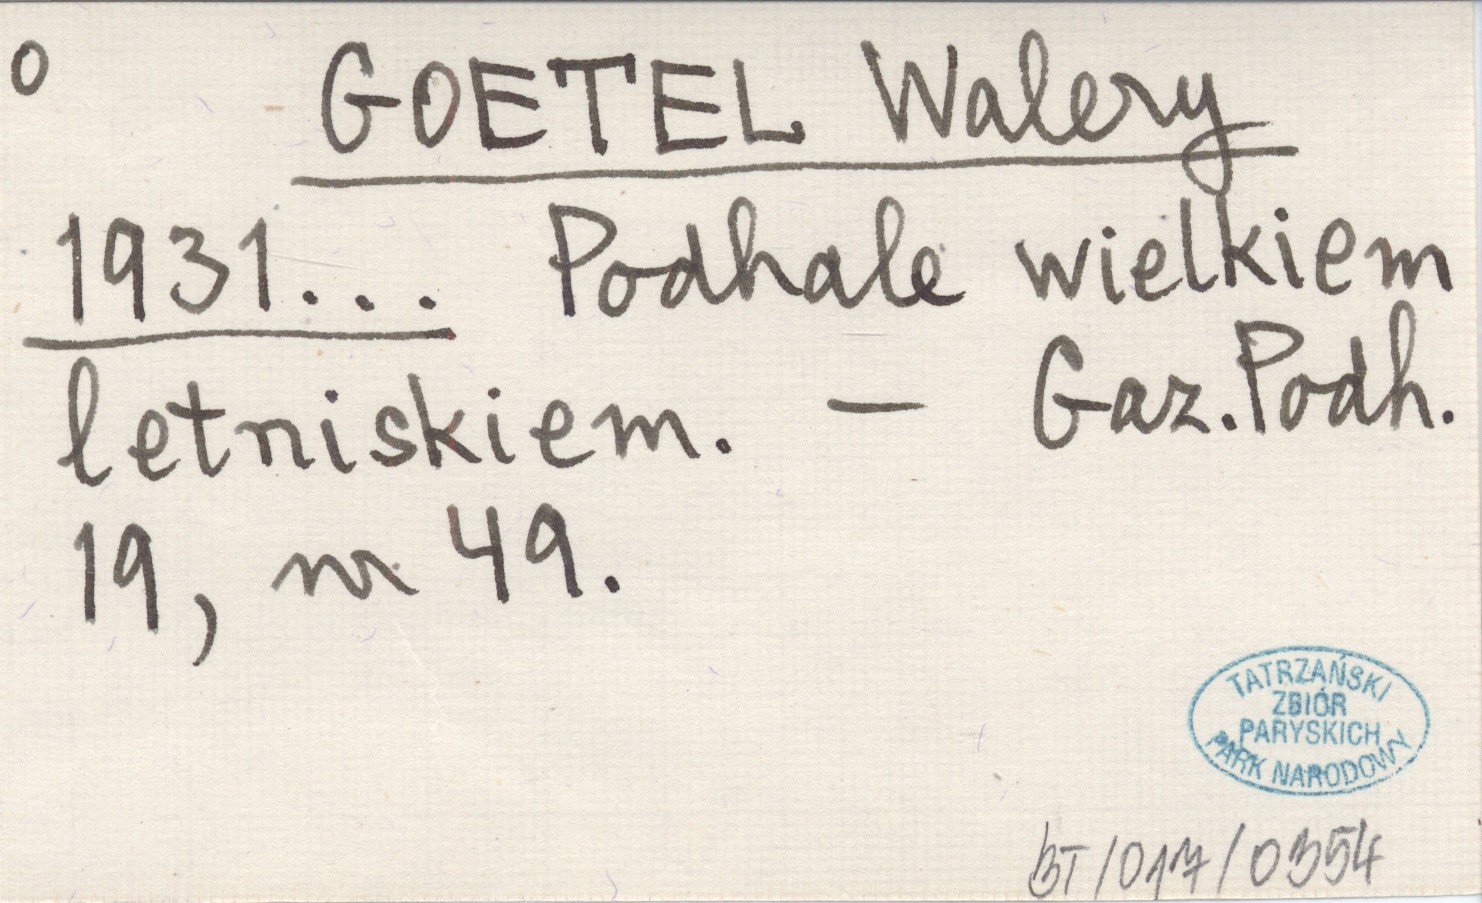 o GOETEL Walery
1931... Podhale wielkiem
letniskiem. — Gaz. Podh.
19, nr 49.
TATRZAŃSKI
ZBIÓR
PARYSKICH
PARK NARODOWY
BT/017/0354